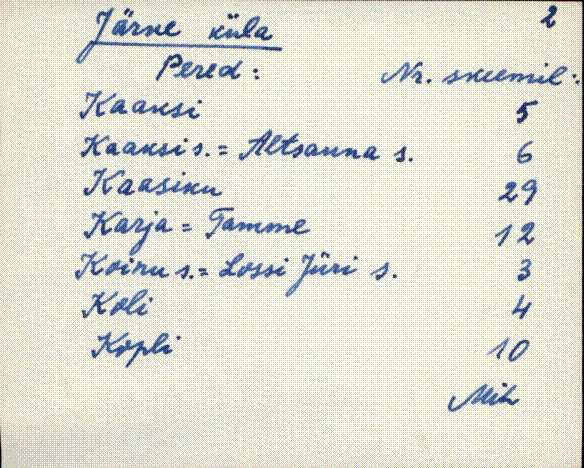 Järve küla 2
Pered: Nr. skeemil:
Kaaksi 5
Kaaksi s. = Altsauna s. 6
Kaasiku 29
Karja = Tamme 12
Koinu s. = Lossi Jüri s. 3
Koli 4
Kopli 10